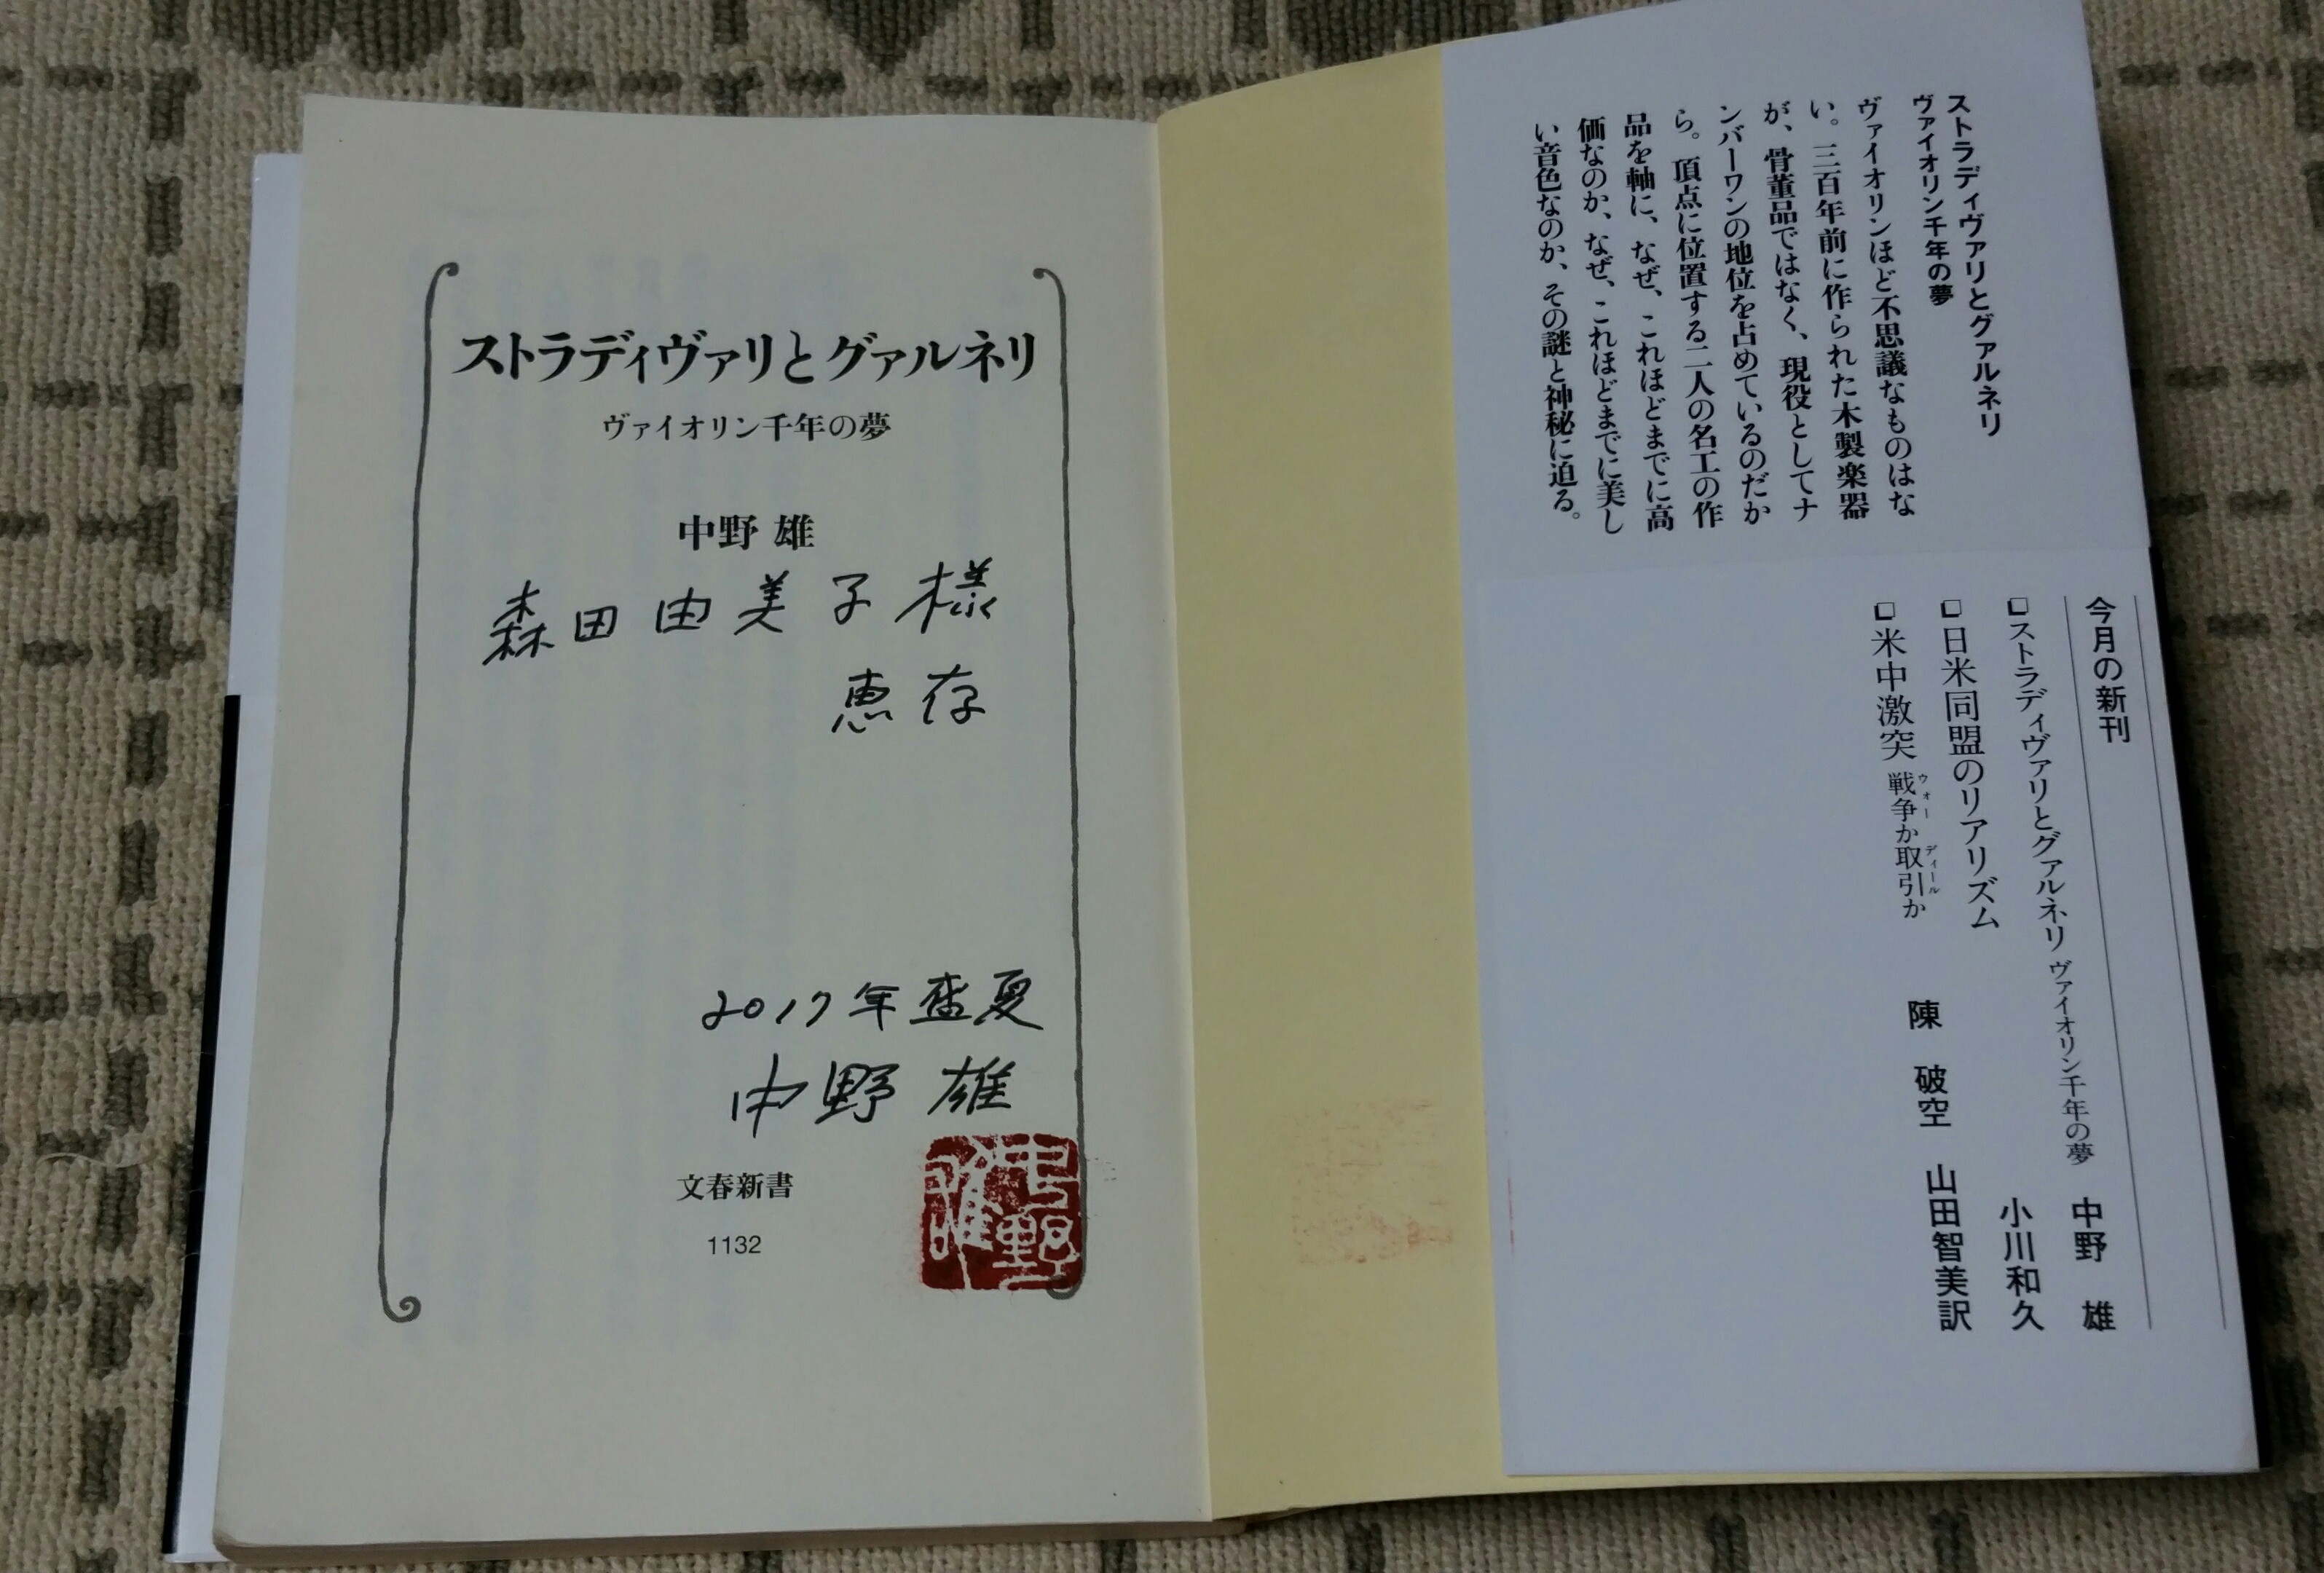 ストラディヴァリとグァルネリ
ヴァイオリン千年の夢
中野 雄
森田由美子様
恵存
2017年盛夏
中野 雄
中野
雄
文春新書
1132
ストラディヴァリとグァルネリ
ヴァイオリン千年の夢
ヴァイオリンほど不思議なものはな
い。三百年前に作られた木製楽器
が、骨董品ではなく、現役としてナ
ンバーワンの地位を占めているのだか
ら。頂点に位置する二人の名工の作
品を軸に、なぜ、これほどまでに高
価なのか、なぜ、これほどまでに美し
い音色なのか、その謎と神秘に迫る。
今月の新刊
❏ストラディヴァリとグァルネリ ヴァイオリン千年の夢 中野 雄
❏日米同盟のリアリズム 小川和久
❏米中激突 戦争か取引か 陳 破空 山田智美訳
ウォー ディール